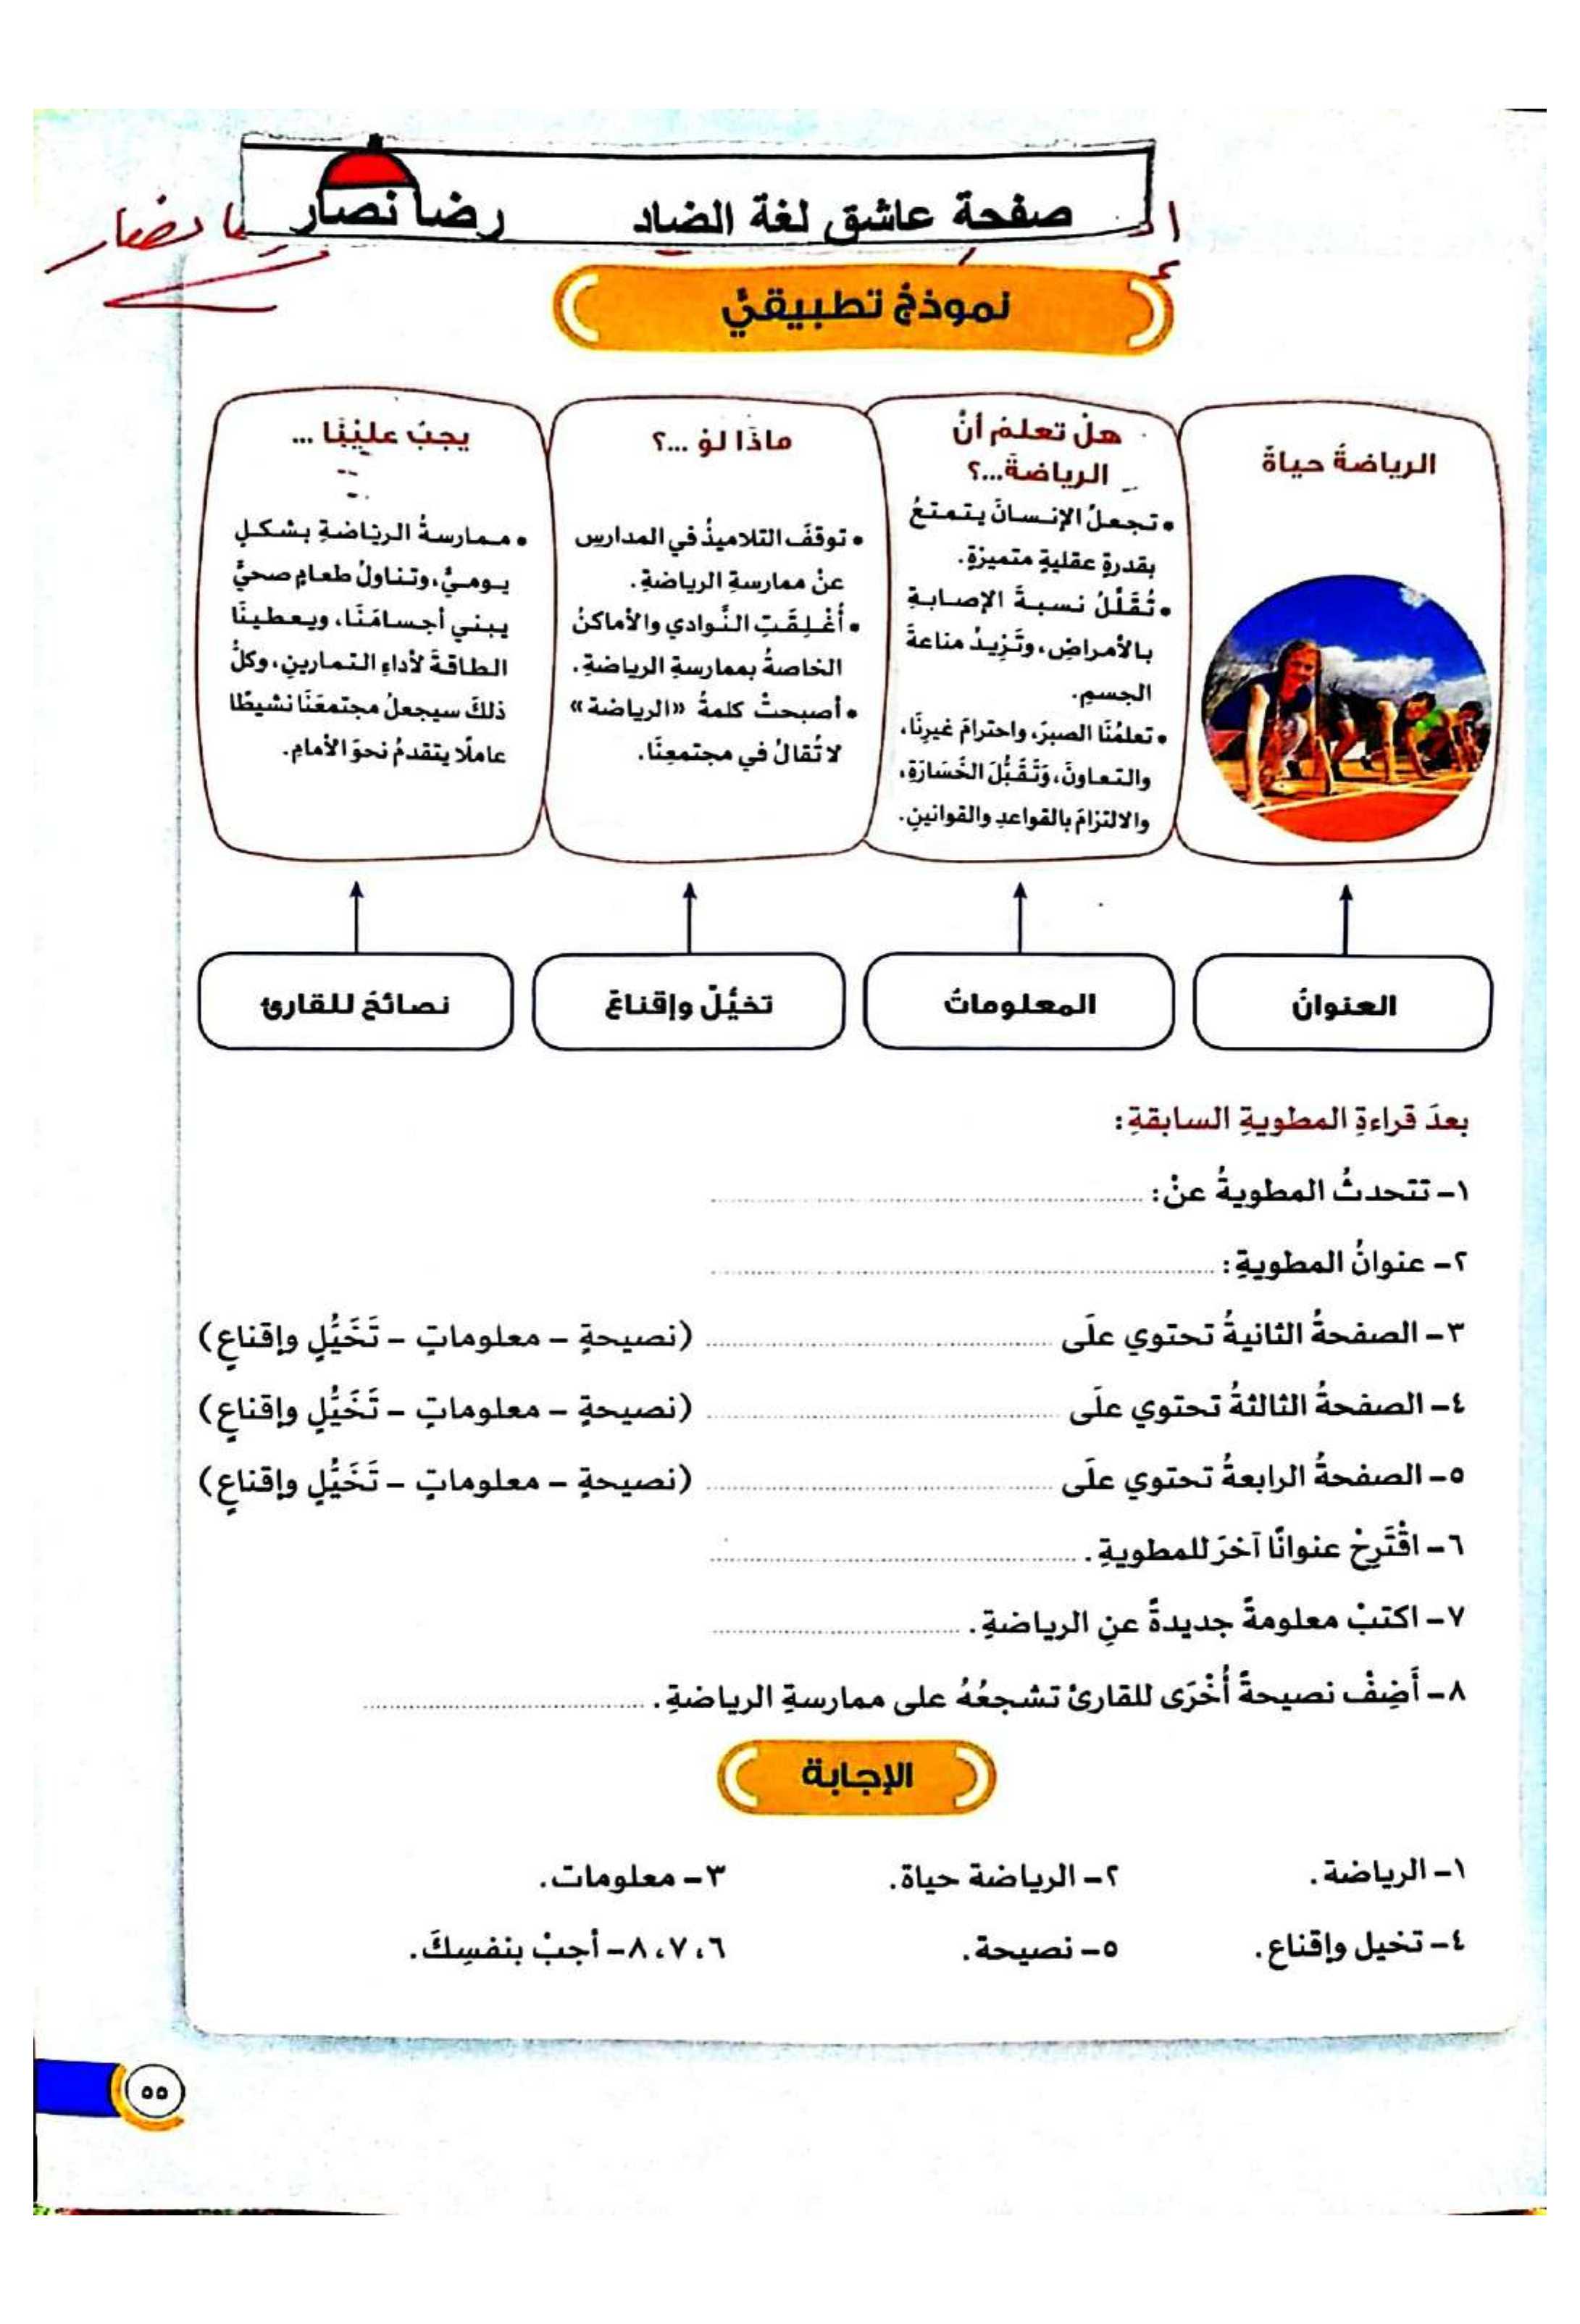 صفحة عاشق لغة الضاد رضا نصار
نموذجٌ تطبيقيٌّ
الرياضةُ حياةٌ
هلْ تعلمُ أنَّ
الرياضةَ...؟
• تجعلُ الإنسانَ يتمتعُ
بقدرةٍ عقليةٍ متميزةٍ.
• تُقَلِّلُ نسبةَ الإصابةِ
بالأمراضِ، وتَزِيدُ مناعةَ
الجسمِ.
• تعلمُنَا الصبرَ، واحترامَ غيرِنَا،
والتعاونَ، وَتَقَبُّلَ الخَسَارَةِ،
والالتزامَ بالقواعدِ والقوانينِ.
ماذَا لوْ ...؟
• توقفَ التلاميذُ في المدارسِ
عنْ ممارسةِ الرياضةِ.
• أُغْلِقَتِ النَّوادي والأماكنُ
الخاصةُ بممارسةِ الرياضةِ.
• أصبحتْ كلمةُ «الرياضة»
لا تُقالُ في مجتمعِنَا.
يجبُ عليْنَا ...
• ممارسةُ الرياضةِ بشكلٍ
يوميٍّ، وتناولُ طعامٍ صحيٍّ
يبني أجسامَنَا، ويعطينَا
الطاقةَ لأداءِ التمارينِ، وكلُّ
ذلكَ سيجعلُ مجتمعَنَا نشيطًا
عاملًا يتقدمُ نحوَ الأمامِ.
العنوانُ
المعلوماتُ
تخيُّلٌ وإقناعٌ
نصائحُ للقارئِ
بعدَ قراءةِ المطويةِ السابقةِ:
١- تتحدثُ المطويةُ عنْ: ..........
٢- عنوانُ المطويةِ: ..........
٣- الصفحةُ الثانيةُ تحتوي علَى .......... (نصيحةٍ - معلوماتٍ - تَخَيُّلٍ وإقناعٍ)
٤- الصفحةُ الثالثةُ تحتوي علَى .......... (نصيحةٍ - معلوماتٍ - تَخَيُّلٍ وإقناعٍ)
٥- الصفحةُ الرابعةُ تحتوي علَى .......... (نصيحةٍ - معلوماتٍ - تَخَيُّلٍ وإقناعٍ)
٦- اقْتَرِحْ عنوانًا آخرَ للمطويةِ. ..........
٧- اكتبْ معلومةً جديدةً عنِ الرياضةِ. ..........
٨- أَضِفْ نصيحةً أُخْرَى للقارئِ تشجعُهُ على ممارسةِ الرياضةِ. ..........
الإجابة
١- الرياضة. ٢- الرياضة حياة. ٣- معلومات.
٤- تخيل وإقناع. ٥- نصيحة. ٦، ٧، ٨- أجبْ بنفسِكَ.
٥٥